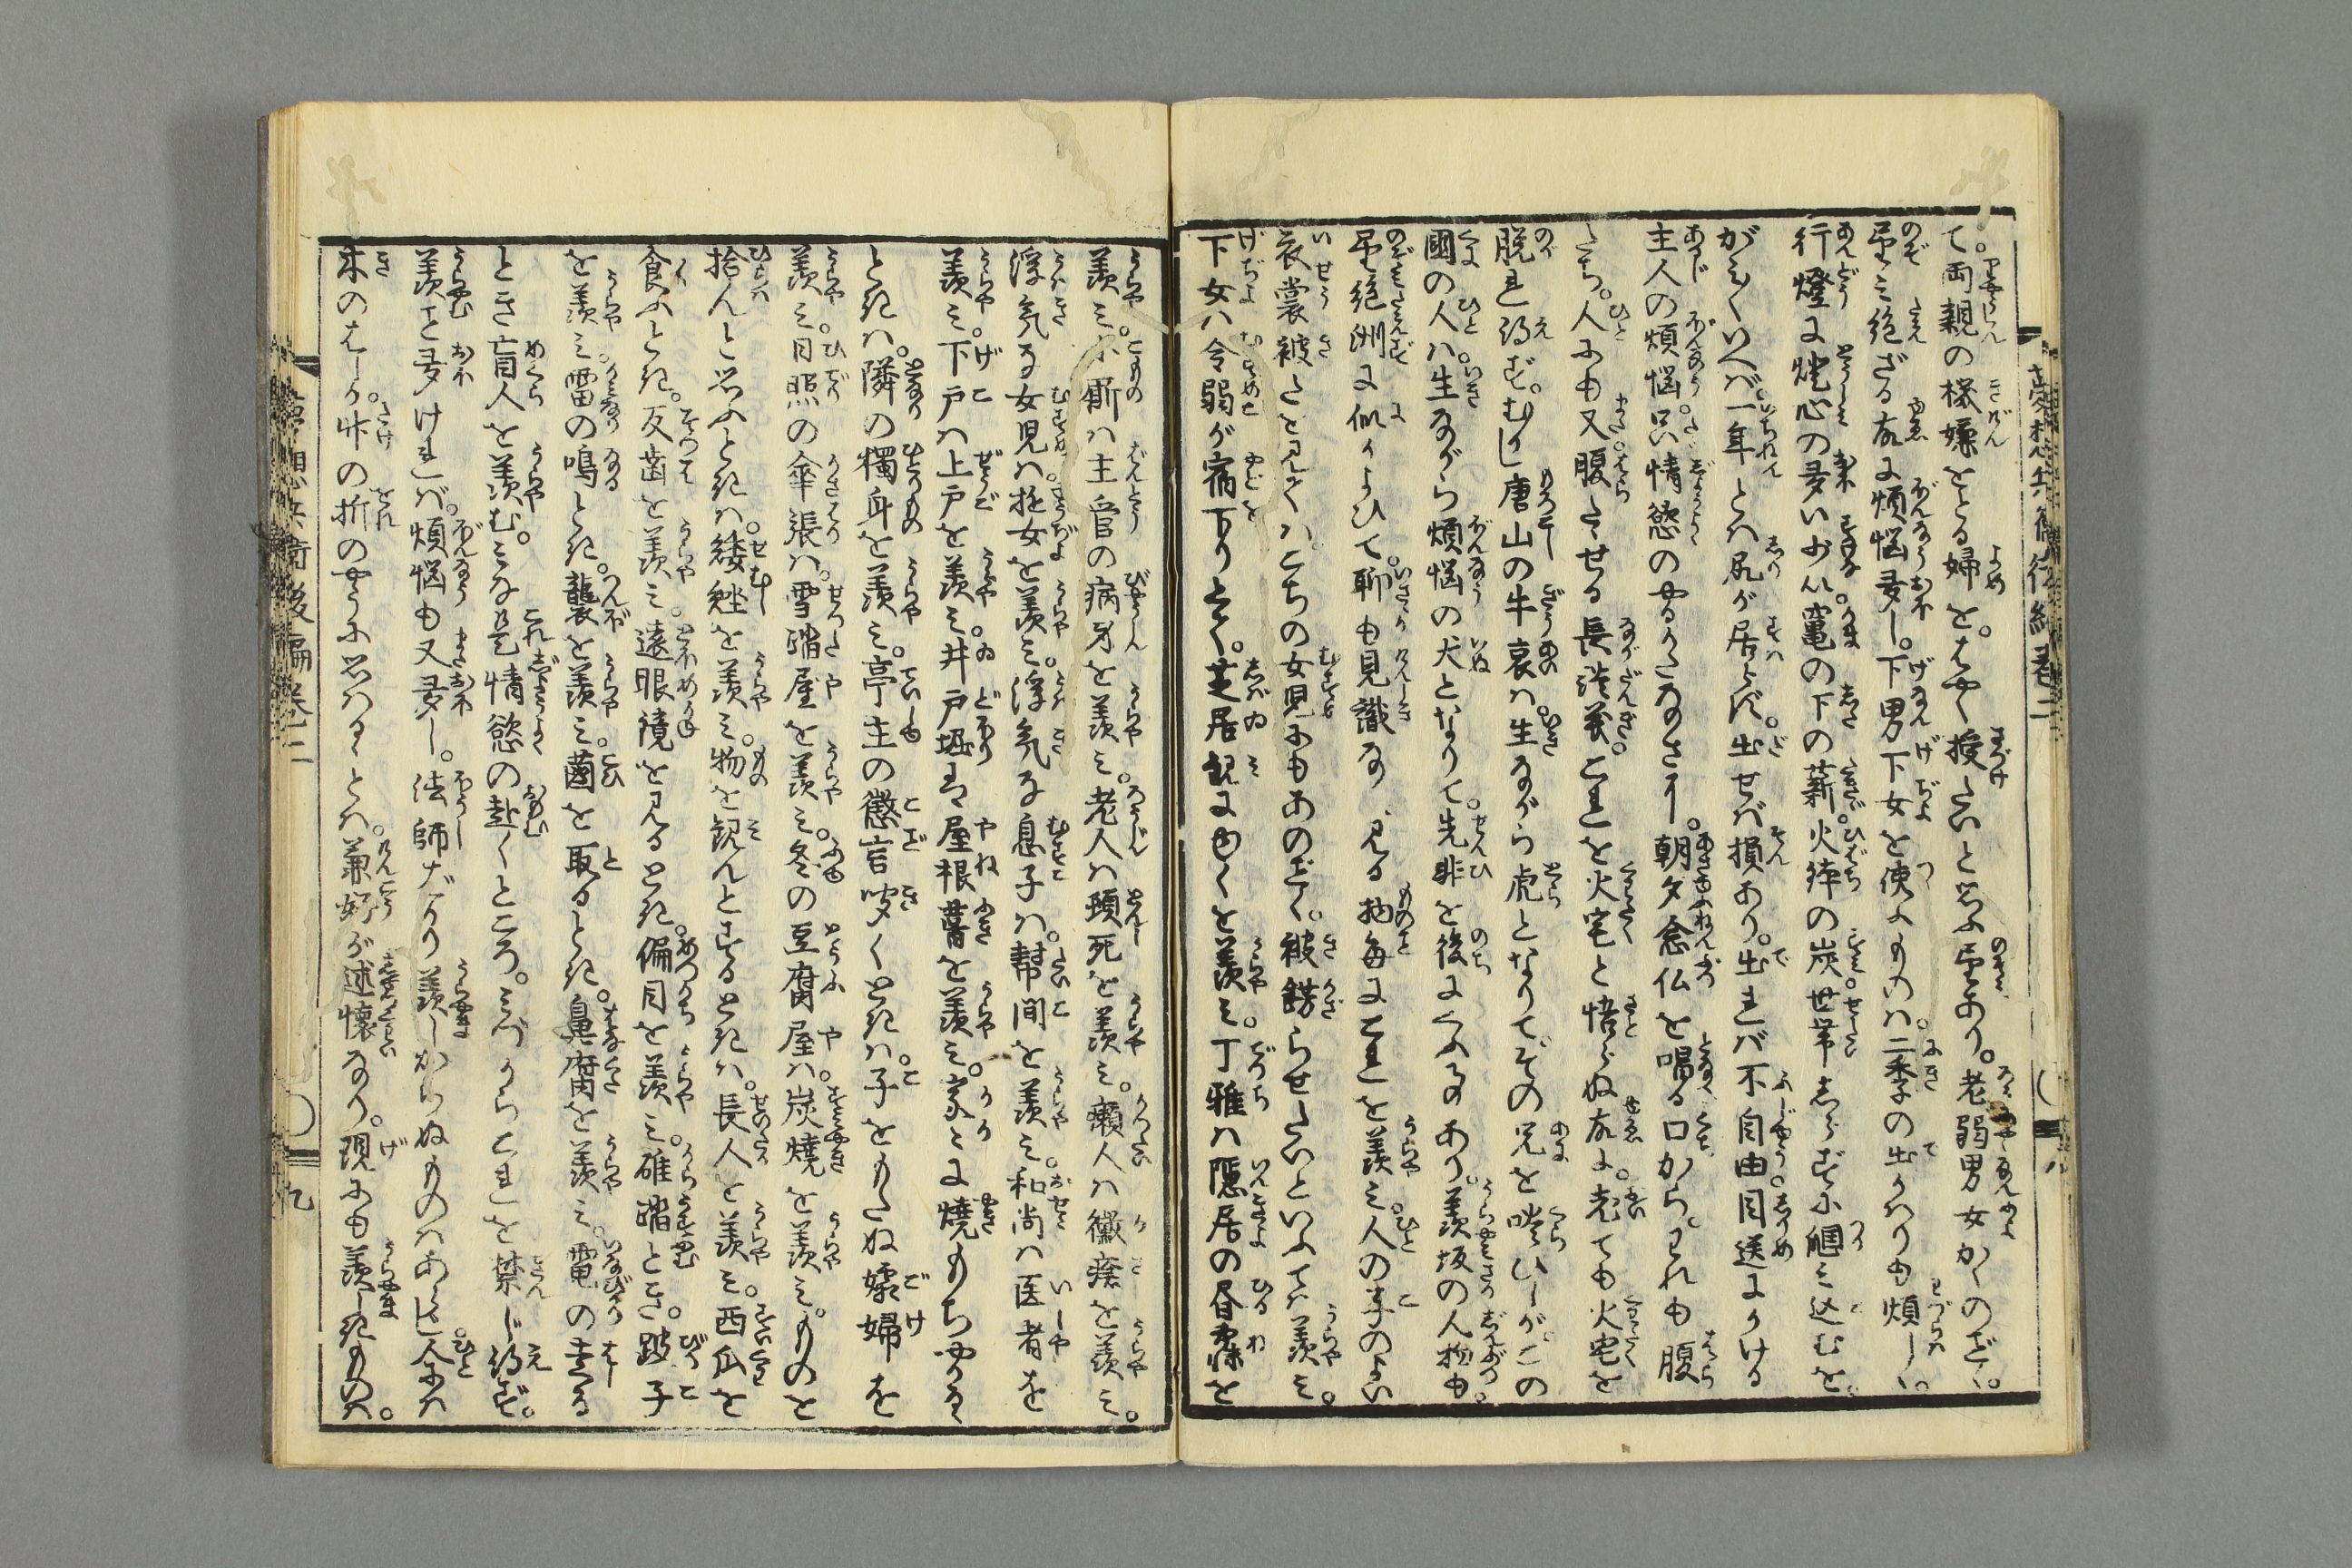 て。両親の機嫌をとる婦を。はやく授たいと思ふ望あり。老弱男女かくのごとく。
望み絶ざる故に煩悩多し。下男下女を使ふものハ。二季の出かハりも煩しく。
行燈に燈心の多い少い。竃の下の薪。火鉢の炭。世帯しらずに個み込むを。
がみ〳〵いへバ一年とハ尻が居らず。出せバ損あり。出れバ不自由。目送にかける
主人の煩悩。只情慾のやるかたなさに。朝夕念仏を唱る口から。われも腹
たち。人にも又腹たゝせる長談義。これを火宅と悟らぬ故に。老ても火宅を
脱れ得ず。むかし唐山の牛哀ハ。生ながら虎となりて。その兄を喰ひしが。この
國の人ハ。生ながら煩悩の犬となりて。先非を後にくふ事あり。羨坂の人物も。
望絶洲に似かよひて。聊も見識なく。見る物毎にこれを羨み。人の子のよい
衣裳被たを見てハ。こちの女児にもあのごとく。被餝らせたいといふてハ羨み。
下女ハ令弱が宿下りして。芝居観にゆくを羨み。丁雅ハ隠居の昼寐を
羨み。小廝ハ主管の病身を羨み。老人ハ頓死を羨み。癩人ハ黴瘡を羨み。
浮気な女児ハ。遊女を羨み。浮気な息子ハ。幇間を羨み。和尚ハ医者を
羨み。下戸ハ上戸を羨み。井戸堀は屋根葺を羨み。家々に焼もちやく
ときハ。隣の獨身を羨み。亭主の𢡟言叱くときハ。子をもたぬ孀婦を
羨み。日照の傘張ハ。雪踏屋を羨み。冬の豆腐屋ハ。炭焼を羨み。ものを
拾んと思ふときハ。矮𨈭を羨み。物を観んとするときハ。長人を羨み。西瓜を
食ふとき。反歯を羨み。遠眼鏡を見るとき。偏目を羨み。碓踏とき。跛子
を羨み。雷の鳴とき。聾を羨み。菌を取るとき。鼻腐を羨み。電の走る
とき盲人を羨む。みな是情慾の赴くところ。みづからこれを禁じ得ず。
羨こと多けれバ。煩悩も又多し。法師ばかり羨しからぬものハあらじ。人にハ
木のはしか。竹の折のやうに思ハるゝとハ。兼好が述懐なり。現にも羨しきものハ。
夢想兵衛後編巻二
九